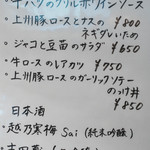 ・牛ハツのグリル赤ワインソース
・上州豚ロースとナスの ¥800
ネギダレいため
・ジャコと豆苗のサラダ ¥650
・牛ロースのレアカツ ¥750
・上州豚ロースのガーリックソテー
のっけ丼 ¥850
日本酒
・越乃寒梅 Sai (純米吟醸)